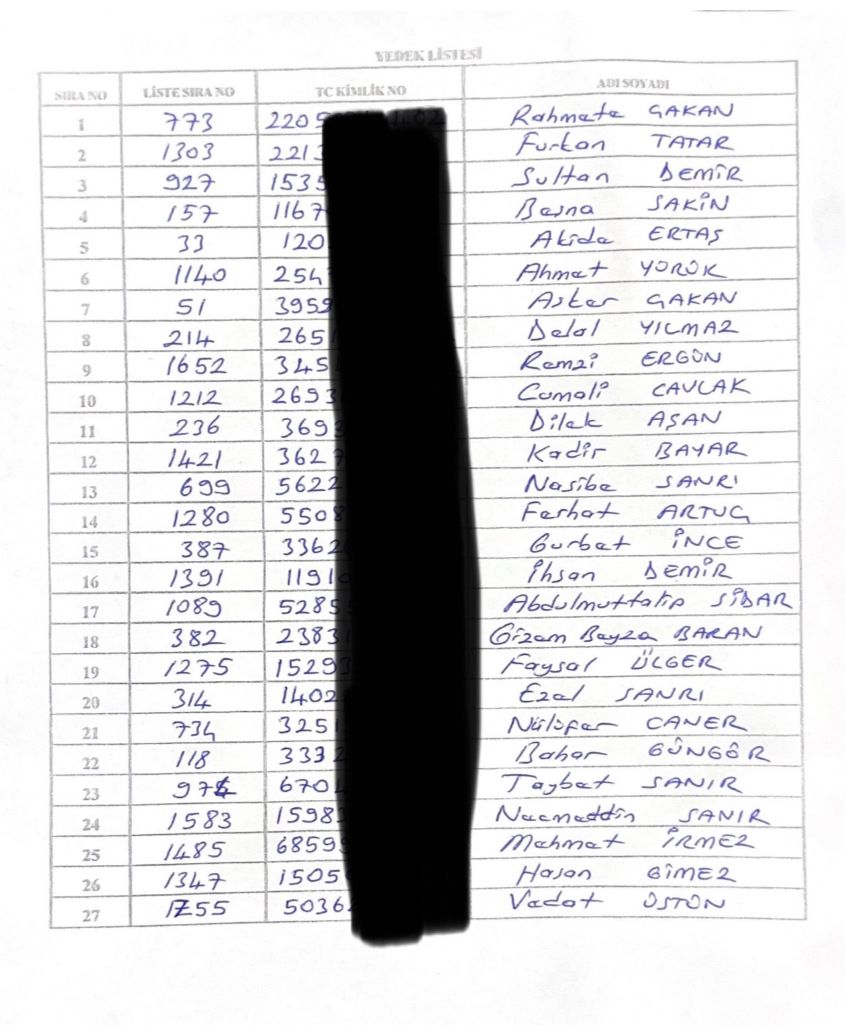 YEDEK LİSTESİ
SIRA NO LİSTE SIRA NO TC KİMLİK NO ADI SOYADI
1 773 2205 Rahmete GAKAN
2 1303 2213 Furkan TATAR
3 927 1535 Sultan DEMİR
4 157 1167 Besna SAKİN
5 33 120 Akide ERTAŞ
6 1140 254 Ahmet YÖRÜK
7 51 3959 Asker GAKAN
8 214 265 Delal YILMAZ
9 1652 345 Remzi ERGÜN
10 1212 2693 Cumali CAVLAK
11 236 3693 Dilek AŞAN
12 1421 3627 Kadir BAYAR
13 699 5622 Nasibe SANRI
14 1280 5508 Ferhat ARTUÇ
15 387 3362 Gurbet İNCE
16 1391 1191 İhsan DEMİR
17 1089 5285 Abdulmuttalip SİDAR
18 382 2383 Gizem Beyza BARAN
19 1275 1529 Faysal ÜLGER
20 314 1402 Ezel SANRI
21 734 3251 Nilüfer CANER
22 118 3332 Bahar GÜNGÖR
23 975 6701 Taybet SANIR
24 1583 1598 Necmeddin SANIR
25 1485 6859 Mehmet İRMEZ
26 1347 1505 Hasan GİMEZ
27 1255 5036 Vedat ÜSTÜN